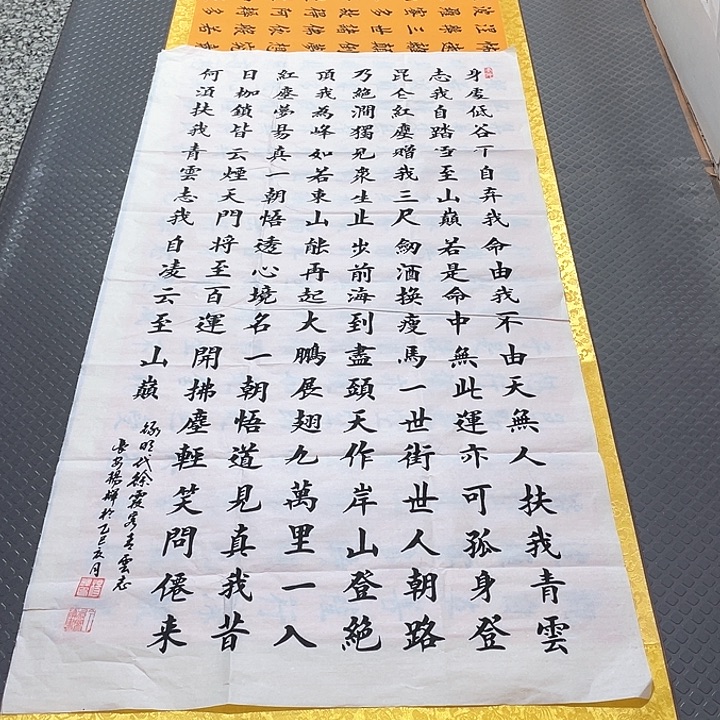 身處低谷不自弃我命由我不由天無人扶我青雲
志我自踏雪至山巔若是命中無此運亦可孤身登
昆仑紅塵贈我三尺劒酒換瘦馬一世街世人朝路
乃絕澗獨見來生止步前海到盡頭天作岸山登絕
頂我為峰如若東山能再起大鵬展翅九萬里一入
紅塵夢易真一朝悟透心境名一朝悟道見真我昔
日枷鎖皆云煙天門將至百運開拂塵輕笑問僊來
何須扶我青雲志我自凌云至山巔
錄明代徐霞客青雲志
長安楊輝於乙巳亥月